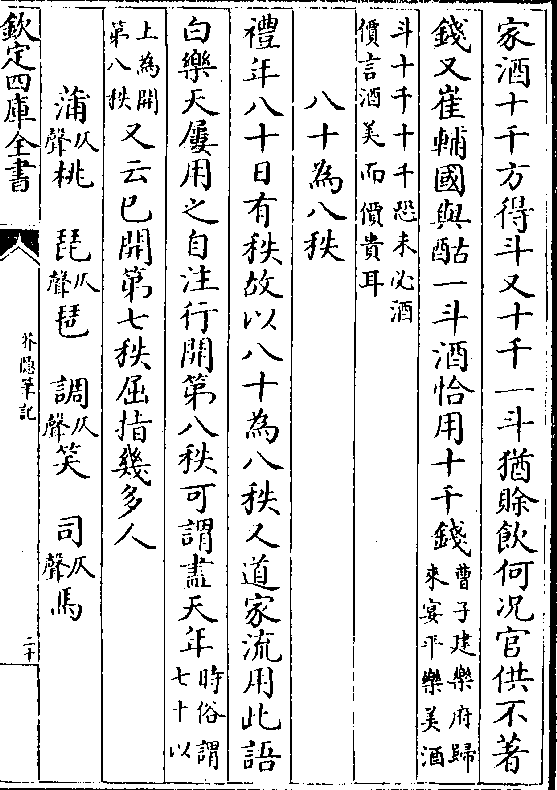 家酒十千方得斗又十千一斗猶賒飲何況官供不著
錢又崔輔國與酤一斗酒恰用十千錢曹子建樂府歸來宴平樂美酒
斗十千十千恐未必酒價言酒美而價貴耳
八十為八秩
禮年八十日有秩故以八十為八秩又道家流用此語
白樂天屢用之自注行開第八秩可謂盡天年時俗謂七十以
上為開第八秩又云已開第七秩屈指幾多人
蒲仄聲桃 琵仄聲琶 調仄聲笑 司仄聲馬
欽定四庫全書 芥隱筆記 二十